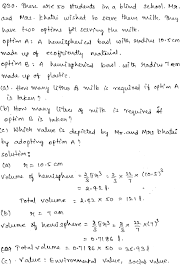 Q30. There are 50 students in a blind school. Mr.
and Mrs Bhatri wished to serve them milk. They
have two options for serving the milk.
option A: A hemispherical bowl with radius 10.5 cm
made up of ecofriendly material.
option B: A hemispherical bowl with radius 7 cm
made up of plastic.
(a). How many litres of milk is required if option A
is taken?
(b) How many litres of milk is required if
option B is taken?
(c) Which value is depicted by Mr. and Mrs Bhatri
by adopting option A?
solution:
(a) r = 10.5 cm
Volume of hemisphere = 2/3 πr³ = 2/3 × 22/7 × (10.5)³
= 2.42 l.
Total volume = 2.42 × 50 = 121 l.
(b) r = 7 cm
Volume of hemisphere = 2/3 πr³ = 2/3 × 22/7 × (7)³
= 0.7186 l.
Total volume = 0.7186 × 50 = 35.93 l.
(c). Value: Environmental value, social value.